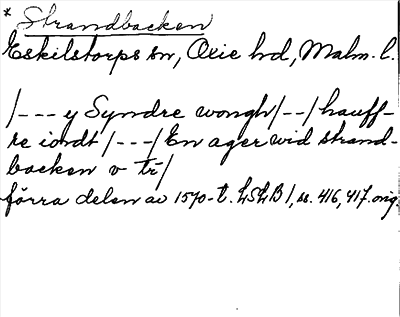 * Strandbacken
Eskilstorps sn, Oxie hd, Malm. l.
/--- y Syndre wongh /--/ hauff-
re iordt /---/ En ager wid strand-
backen v tr /
förra delen av 1570-t. LSLB 1, ss. 416, 417. orig.